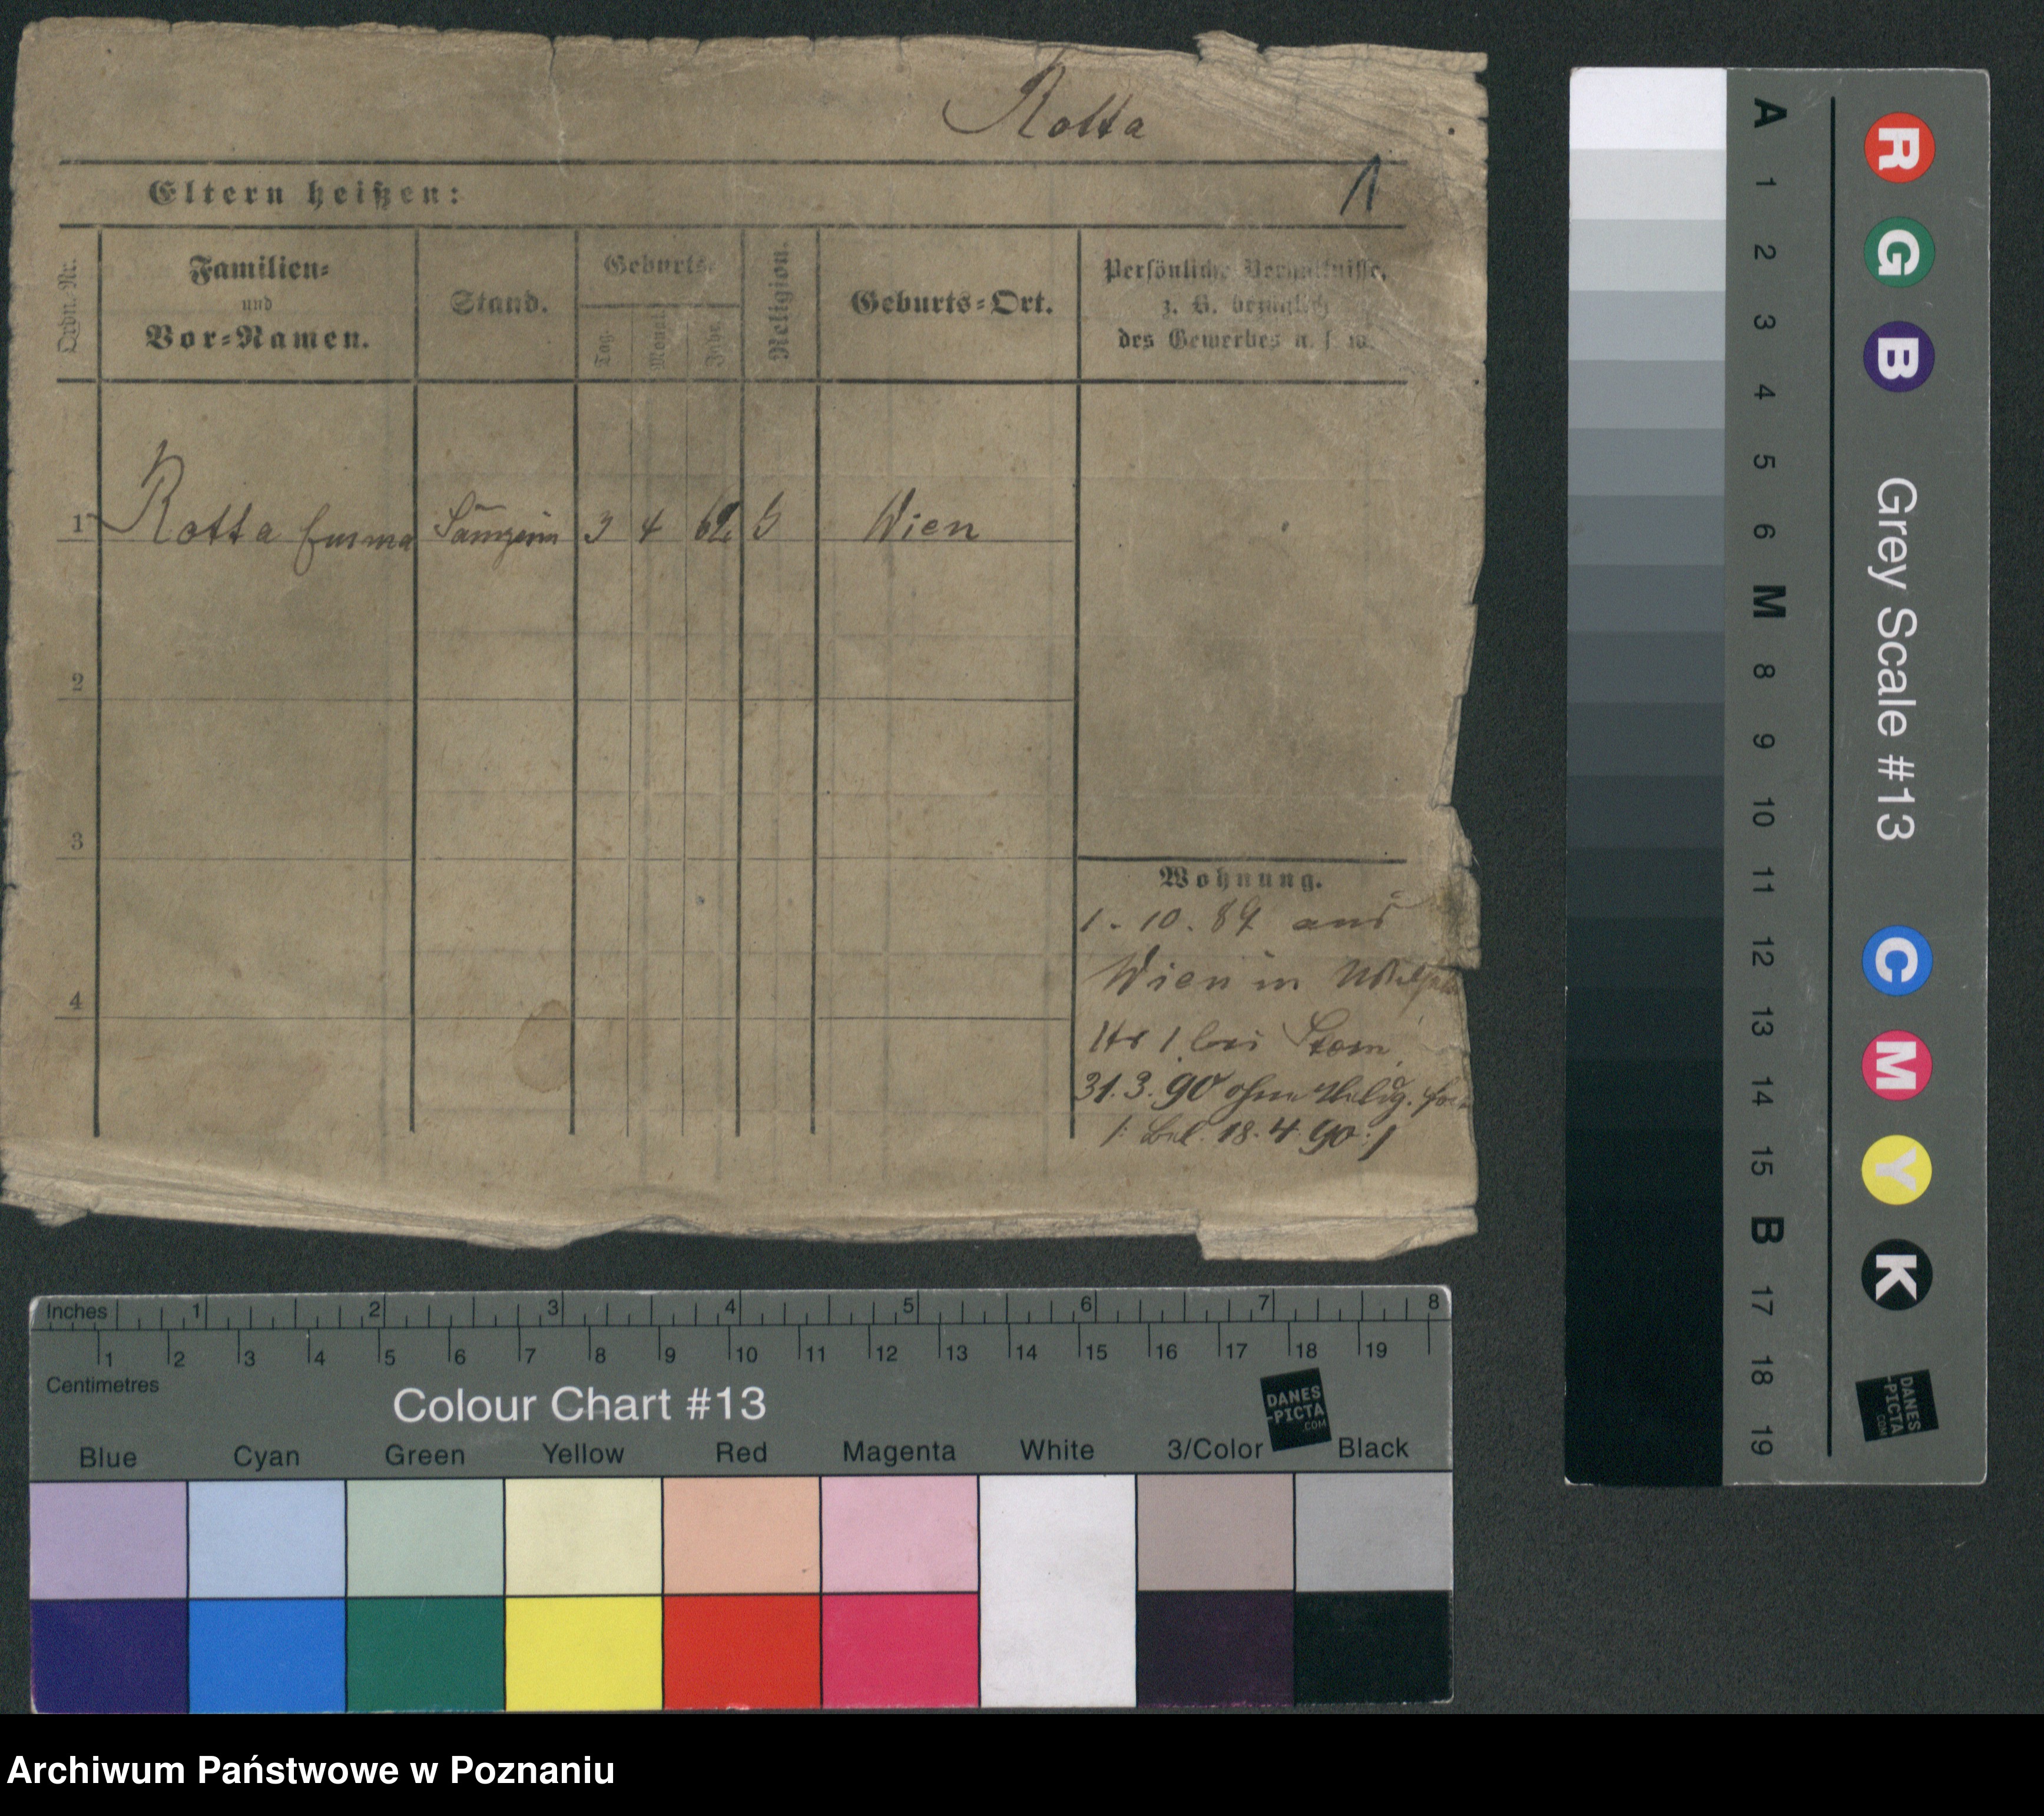 Rotta
1
Eltern heißen:
Ordn. Nr.
Familien-
und
Vor-Namen.
Stand.
Geburts-
Tag.
Monat.
Jahr.
Religion.
Geburts-Ort.
Persönliche Verhältnisse,
z. B. bezüglich
des Gewerbes u. s. w.
1 Rotta Emma Sängerin 3 4 62 Wien
2
3
4
Wohnung.
1. 10. 89 aus
Wien in
1 bei Stern
31. 3. 90 ohne Meldg. fort
/: 18. 4. 90 :/
Inches 1 2 3 4 5 6 7 8
1 2 3 4 5 6 7 8 9 10 11 12 13 14 15 16 17 18 19
Centimetres
Colour Chart #13
DANES
-PICTA
.COM
Blue Cyan Green Yellow Red Magenta White 3/Color Black
R G B Grey Scale #13 C M Y K
DANES
-PICTA
.COM
A 1 2 3 4 5 6 M 8 9 10 11 12 13 14 15 B 17 18 19
Archiwum Państwowe w Poznaniu